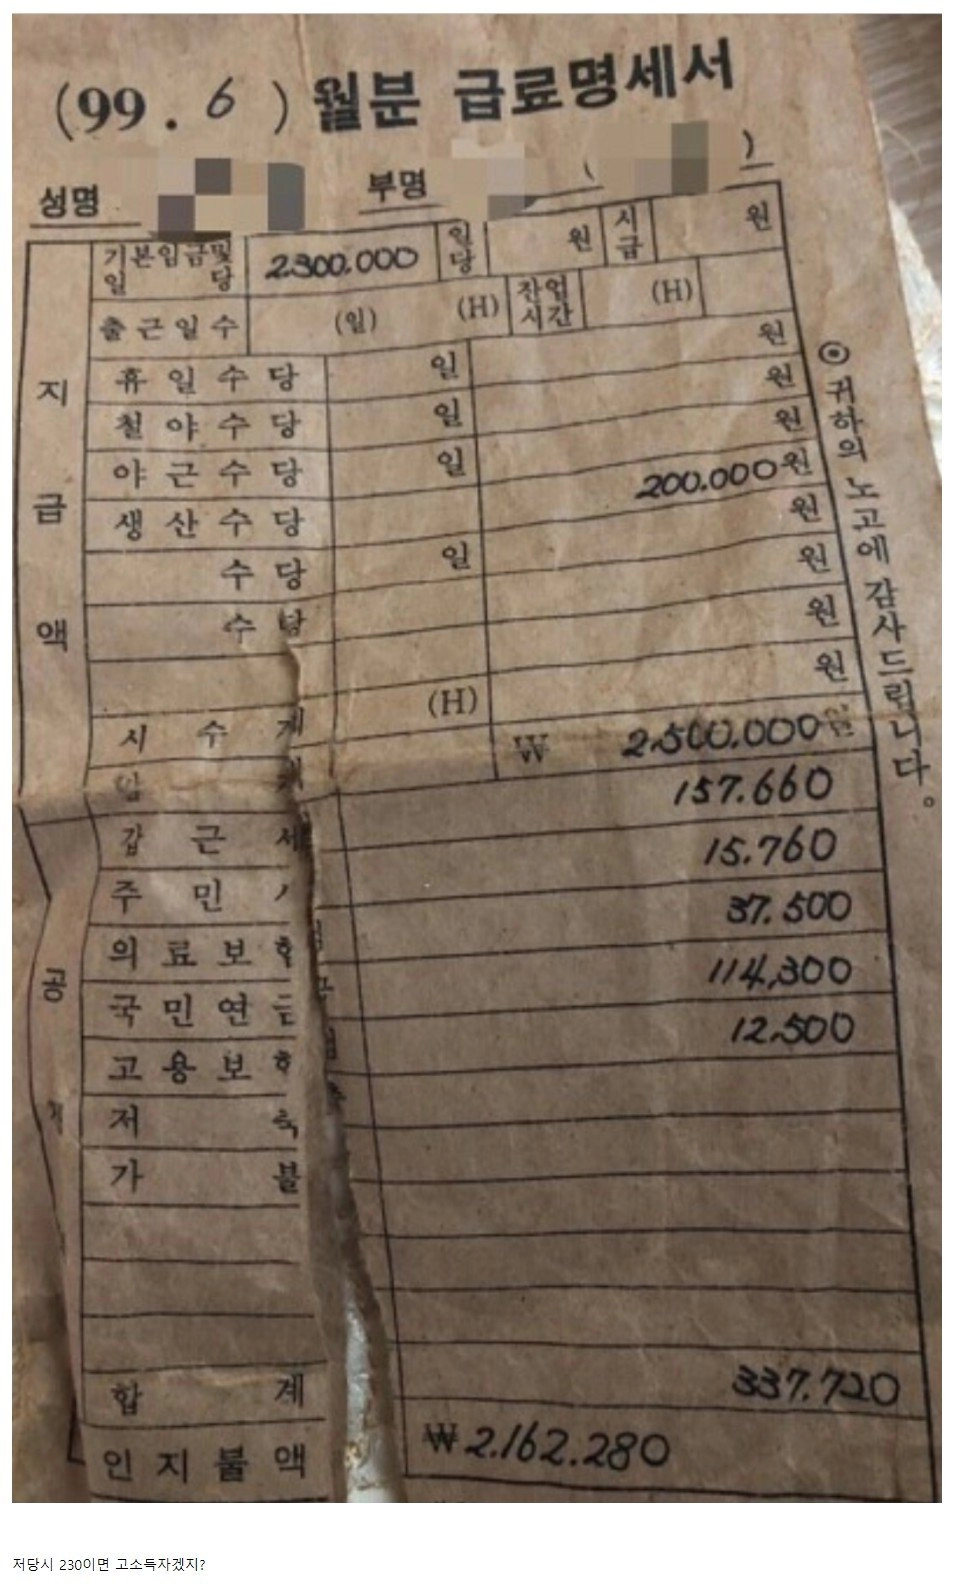 (99. 6 ) 월분 급료명세서
성명 부명 ( )
지급액
기본임금및 일당 2.300.000 일당 원 시급 원
출근일수 (일) (H) 잔업시간 (H)
원
휴일수당 일 원
철야수당 일 원
야근수당 일 200.000원
생산수당 원
수당 일 원
수당 원
원
시수계 (H)
₩ 2.500.000원
157.660
갑근세 15.760
주민 37.500
의료보험 114,300
국민연금 12.500
고용보험
저축
가불
공제
합계 337.720
인지불액 ₩2.162.280
⊙ 귀하의 노고에 감사드립니다。
저당시 230이면 고소득자겠지?